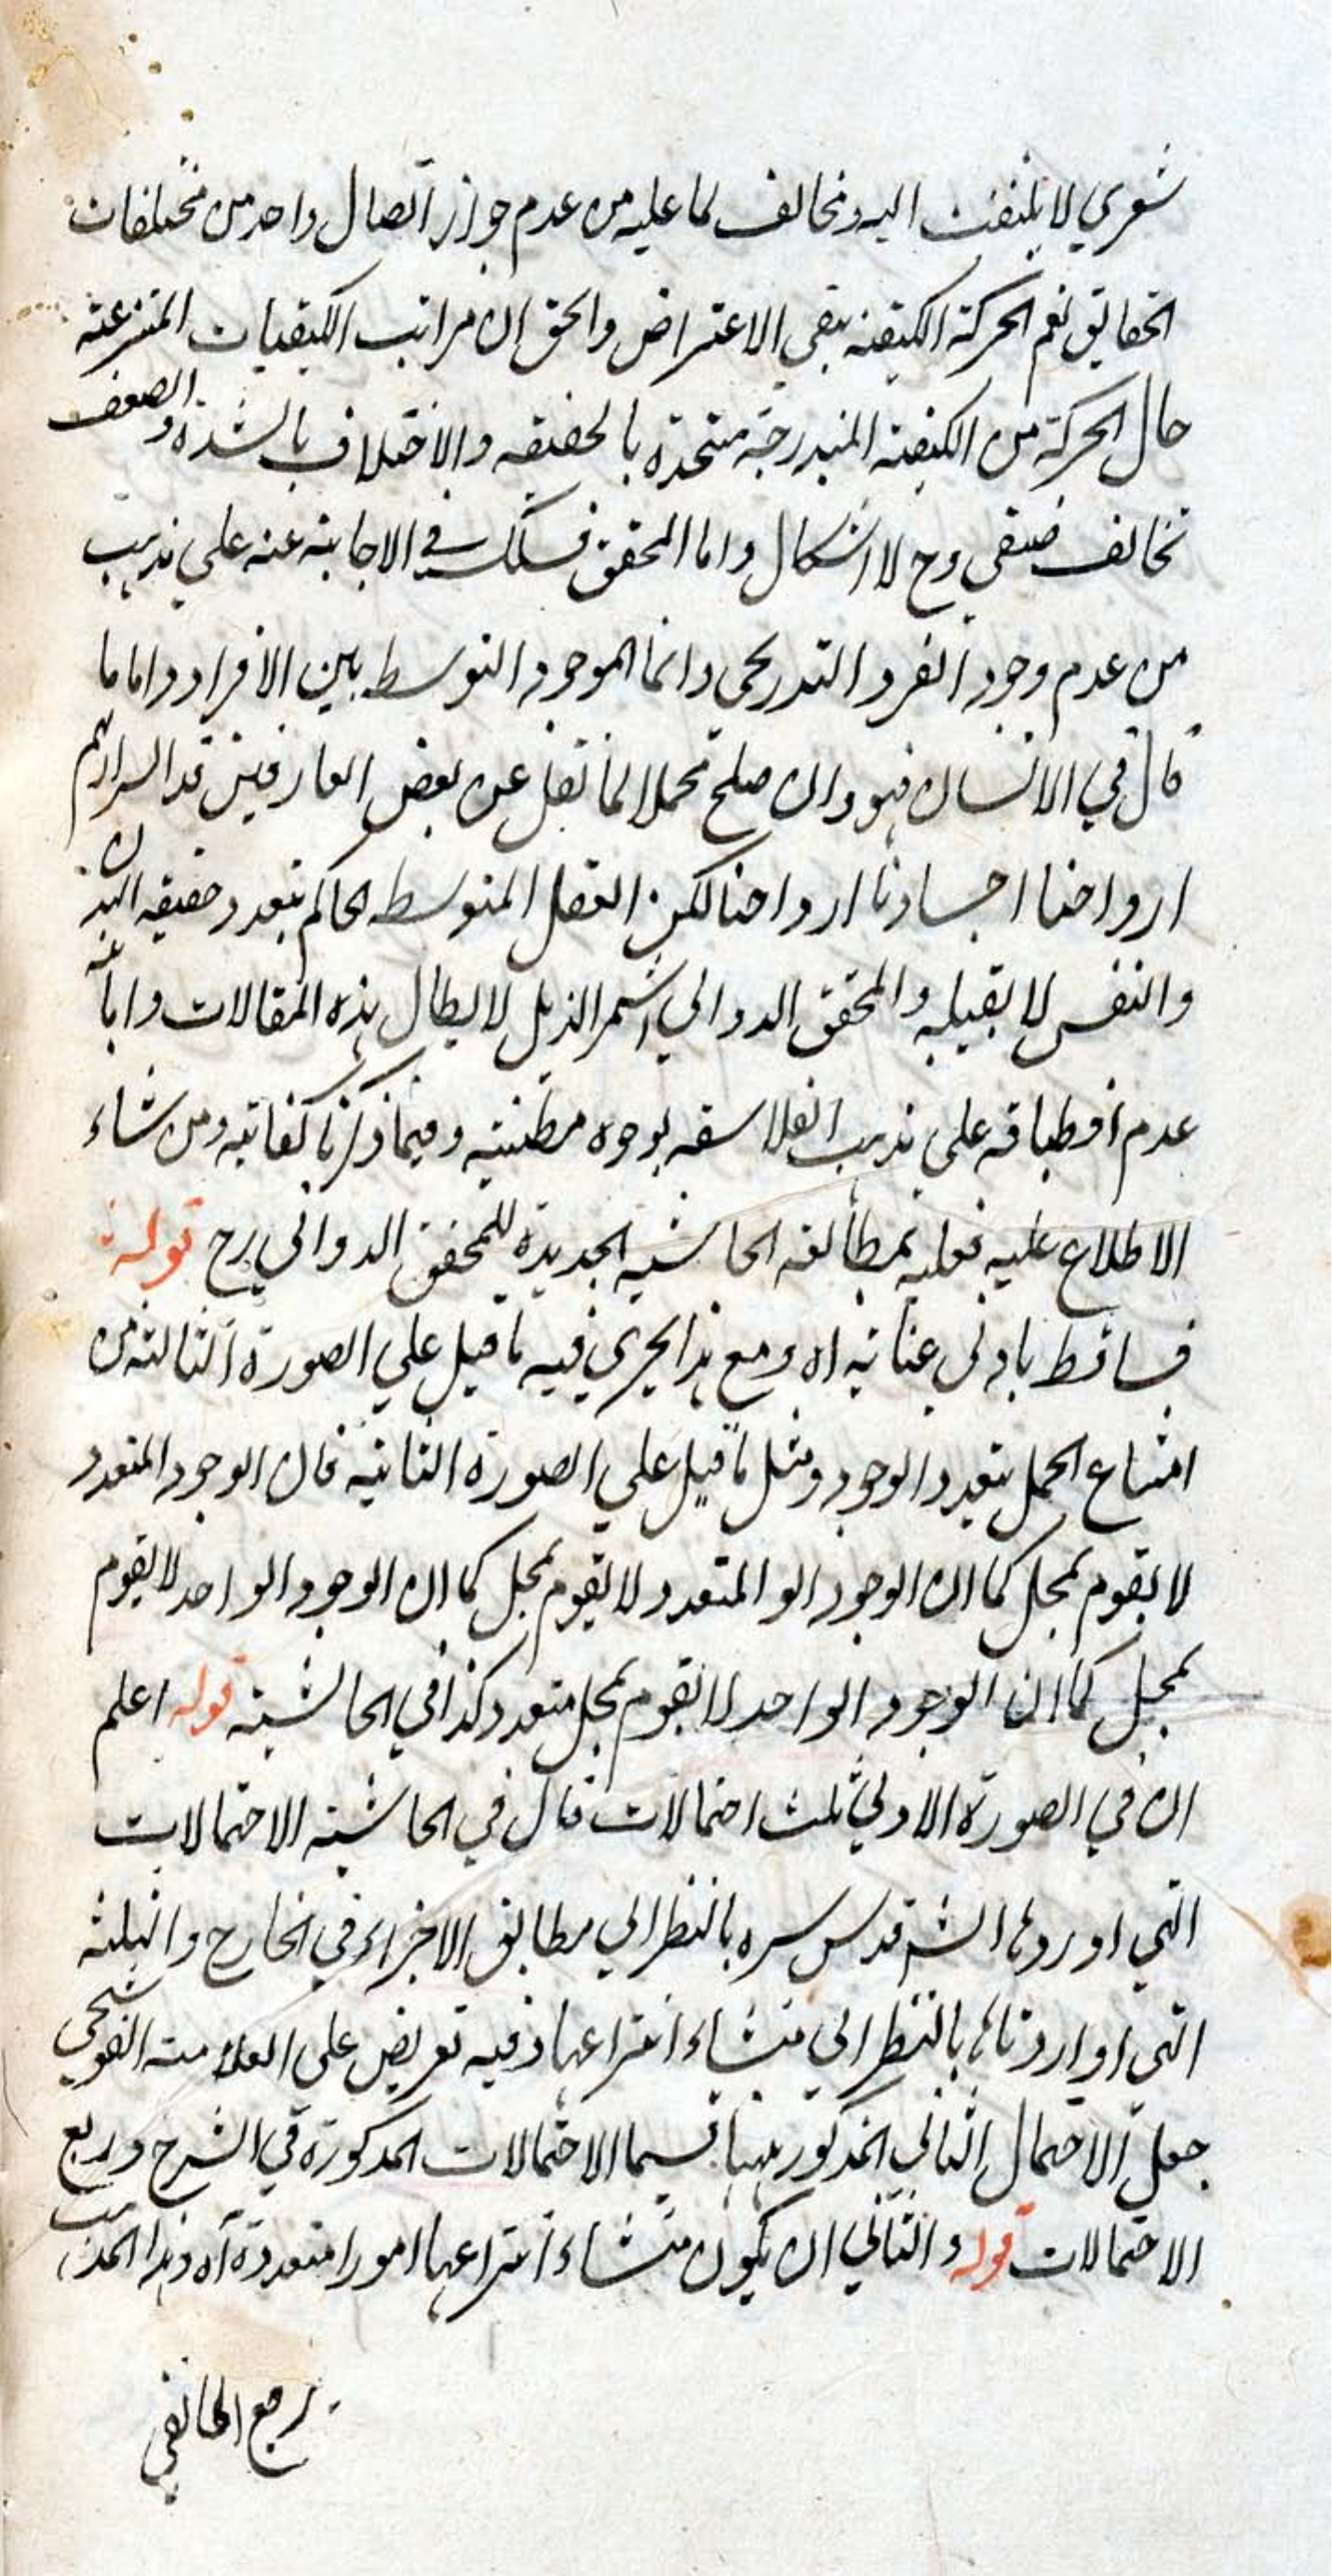 شعري لا يلتفت اليه ومخالف لما عليه من عدم جواز اتصال واحد من مختلفات
الحقايق نعم الحركة الكيفية يبقى الاعتراض والحق ان مراتب الكيفيات المنتزعة
حال الحركة من الكيفية المتدرجة متحدة بالحقيقه والاختلاف بالشدة والضعف
تخالف صنفي وح لا اشكال واما المحقق فسلك في الاجابة عنه على مذهب
من عدم وجود الفرد التدريجي وانما الموجود التوسط بين الافراد واما ما
قال في الانسان فهو وان صلح محملا لما نقل عن بعض العارفين قد اسرارهم
ارواحنا اجسادنا ارواحنا لكن العقل المتوسط الحاكم بتعدد حقيقه البدن
والنفس لا يقبله والمحقق الدواني شمر الذيل لابطال هذه المقالات وابانة
عدم انطباقه على مذهب الفلاسفه بوجوه مطنبته وفيما ذكرنا كفاية ومن شاء
الاطلاع عليه فعليه بمطالعه الحاشيه الجديدة للمحقق الدواني رح قوله
فساقط بادنى عناية اه ومع هذا يجري فيه ما قيل على الصورة الثالثة من
امتناع الحمل بتعدد الوجود ومثل ما قيل على الصورة الثانية فان الوجود المتعدد
لا يقوم بمحل كما ان الوجود الو المتعدد لا يقوم بمحل كما ان الوجود الواحد لا يقوم
بمحل كما ان الوجود الواحد لا يقوم بمحل متعدد كذا في الحاشية قوله اعلم
ان في الصورة الاولي ثلث احتمالات قال في الحاشية الاحتمالات
التي اوردها الشه قدس سره بالنظر الي مطابق الاجزاء في الخارج والثلثة
التي اواردناها بالنظر الي منشاء انتزاعها وفيه تعريض على العلامة القوشجي
جعل الاحتمال الثاني المذكور ههنا قسيما الاحتمالات المذكورة في الشرح وربع
الاحتمالات قوله والثاني ان يكون منشاء انتزاعها امورا متعددة آه وهذا المذهب
يرجع